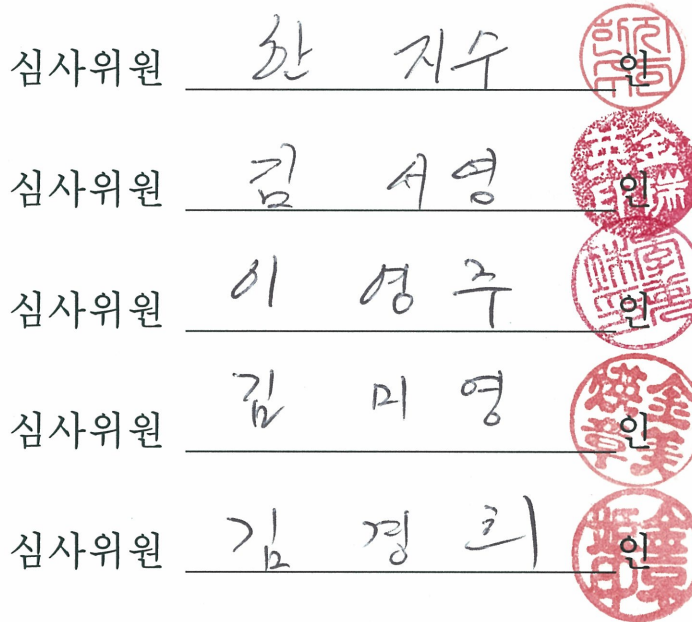 심사위원 한 지수 인
심사위원 김 서영 인
심사위원 이 영주 인
심사위원 김 미영 인
심사위원 김 경희 인